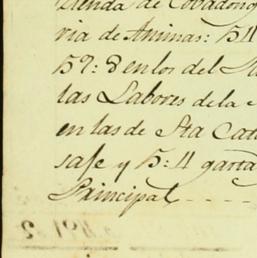 Tienda de Covadong
ria de Animas: 511
59: 8 en los del
las Labores de la
en las de Sta Cat
safe y 15: 11 garta
Principal - - - -